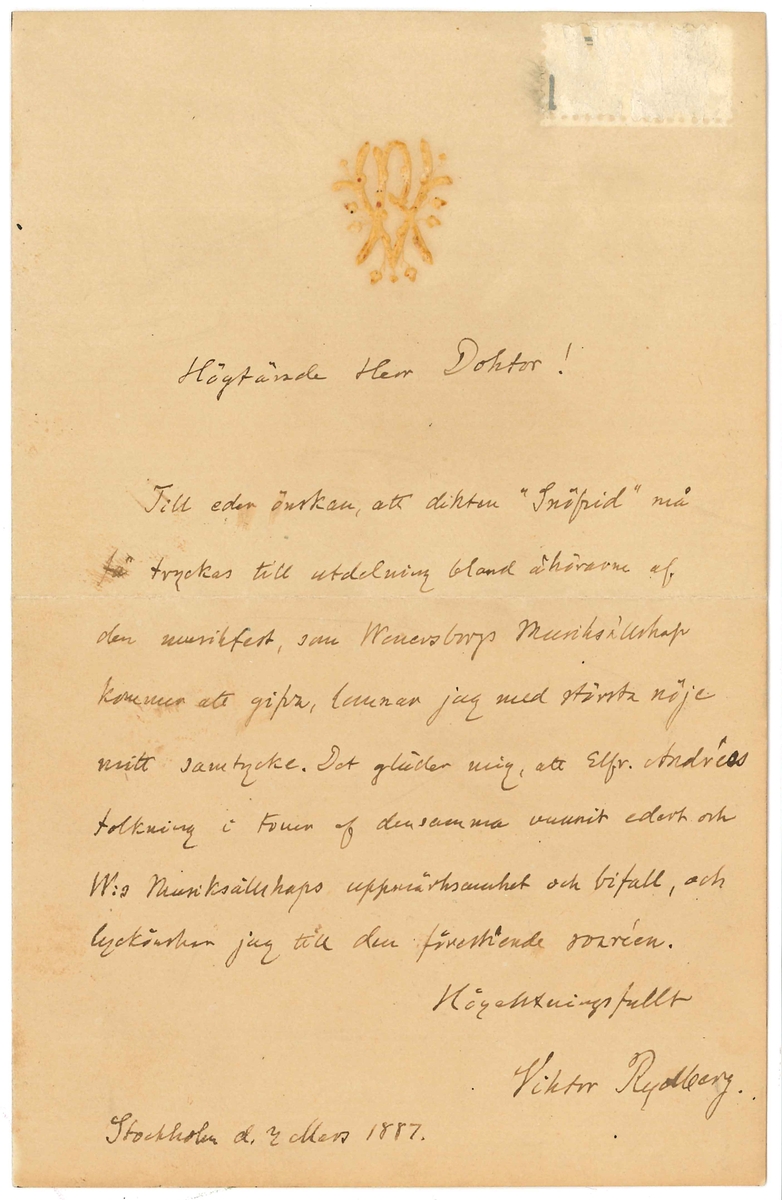 Högtärade Herr Doktor!
Till eder önskan, att dikten "Snöfrid" må
få tryckas till utdelning bland åhörarne af
den musikfest, som Wenersborgs Musiksällskap
kommer att gifva, lemnar jag med största nöje
mitt samtycke. Det gläder mig, att Elfr. Andrées
tolkning i toner af densamma vunnit edert och
W:s Musiksällskaps uppmärksamhet och bifall, och
lyckönskar jag till den förestående soaréen.
Högaktningsfullt
Viktor Rydberg.
Stockholm d. Mars 1887.